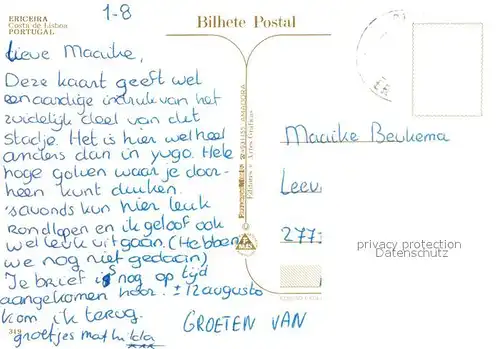 ERICEIRA
Costa de Lisboa
PORTUGAL
1-8
Bilhete Postal
Lieve Maaike,
Deze kaart geeft wel
een aardige indruk van het
zuidelijk deel van dit
stadje. Het is hier wel heel
anders dan in yugo. Hele
hoge golven waar je door-
heen kunt duiken.
's avonds kun hier leuk
rondlopen en ik geloof ook
wel leuk uitgaan. (Hebben
we nog niet gedaan)
Je brief is nog op tijd
aangekomen hoor. ± 12 augusto
kom ik terug.
319
groetjes mathilda
GROETEN VAN
Maaike Beukema
Leeu
277
privacy protection
Datenschutz